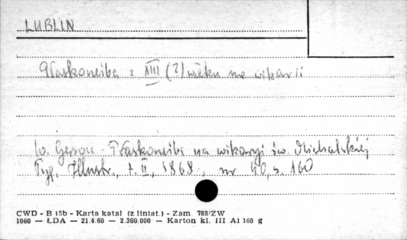 LUBLIN
Płaskorzeźba z XIII (?) wieku na wikarii
W. Gerson - Płaskorzeźba na wikaryi św. Michalskiej
Tyg. Illustr., t. II, 1868, nr 40, s. 160
CWD - B 15b - Karta katal (z liniat.) - Zam. 788/ZW
1060 — ŁDA — 21.4.60 — 2.360.000 — Karton kl. III A1 160 g